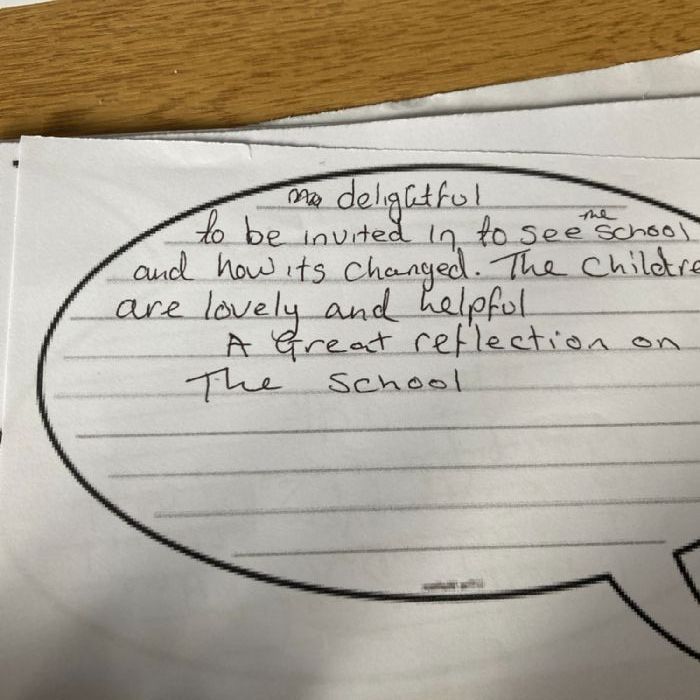 delightful
to be invited in to see the school
and how its changed. The Childre
are lovely and helpful
A Great reflection on
The School